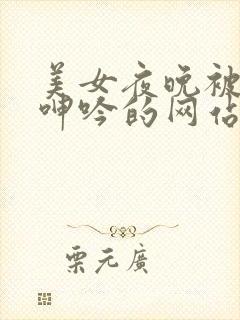 美女夜晚被
呻吟的网站
栗元廣